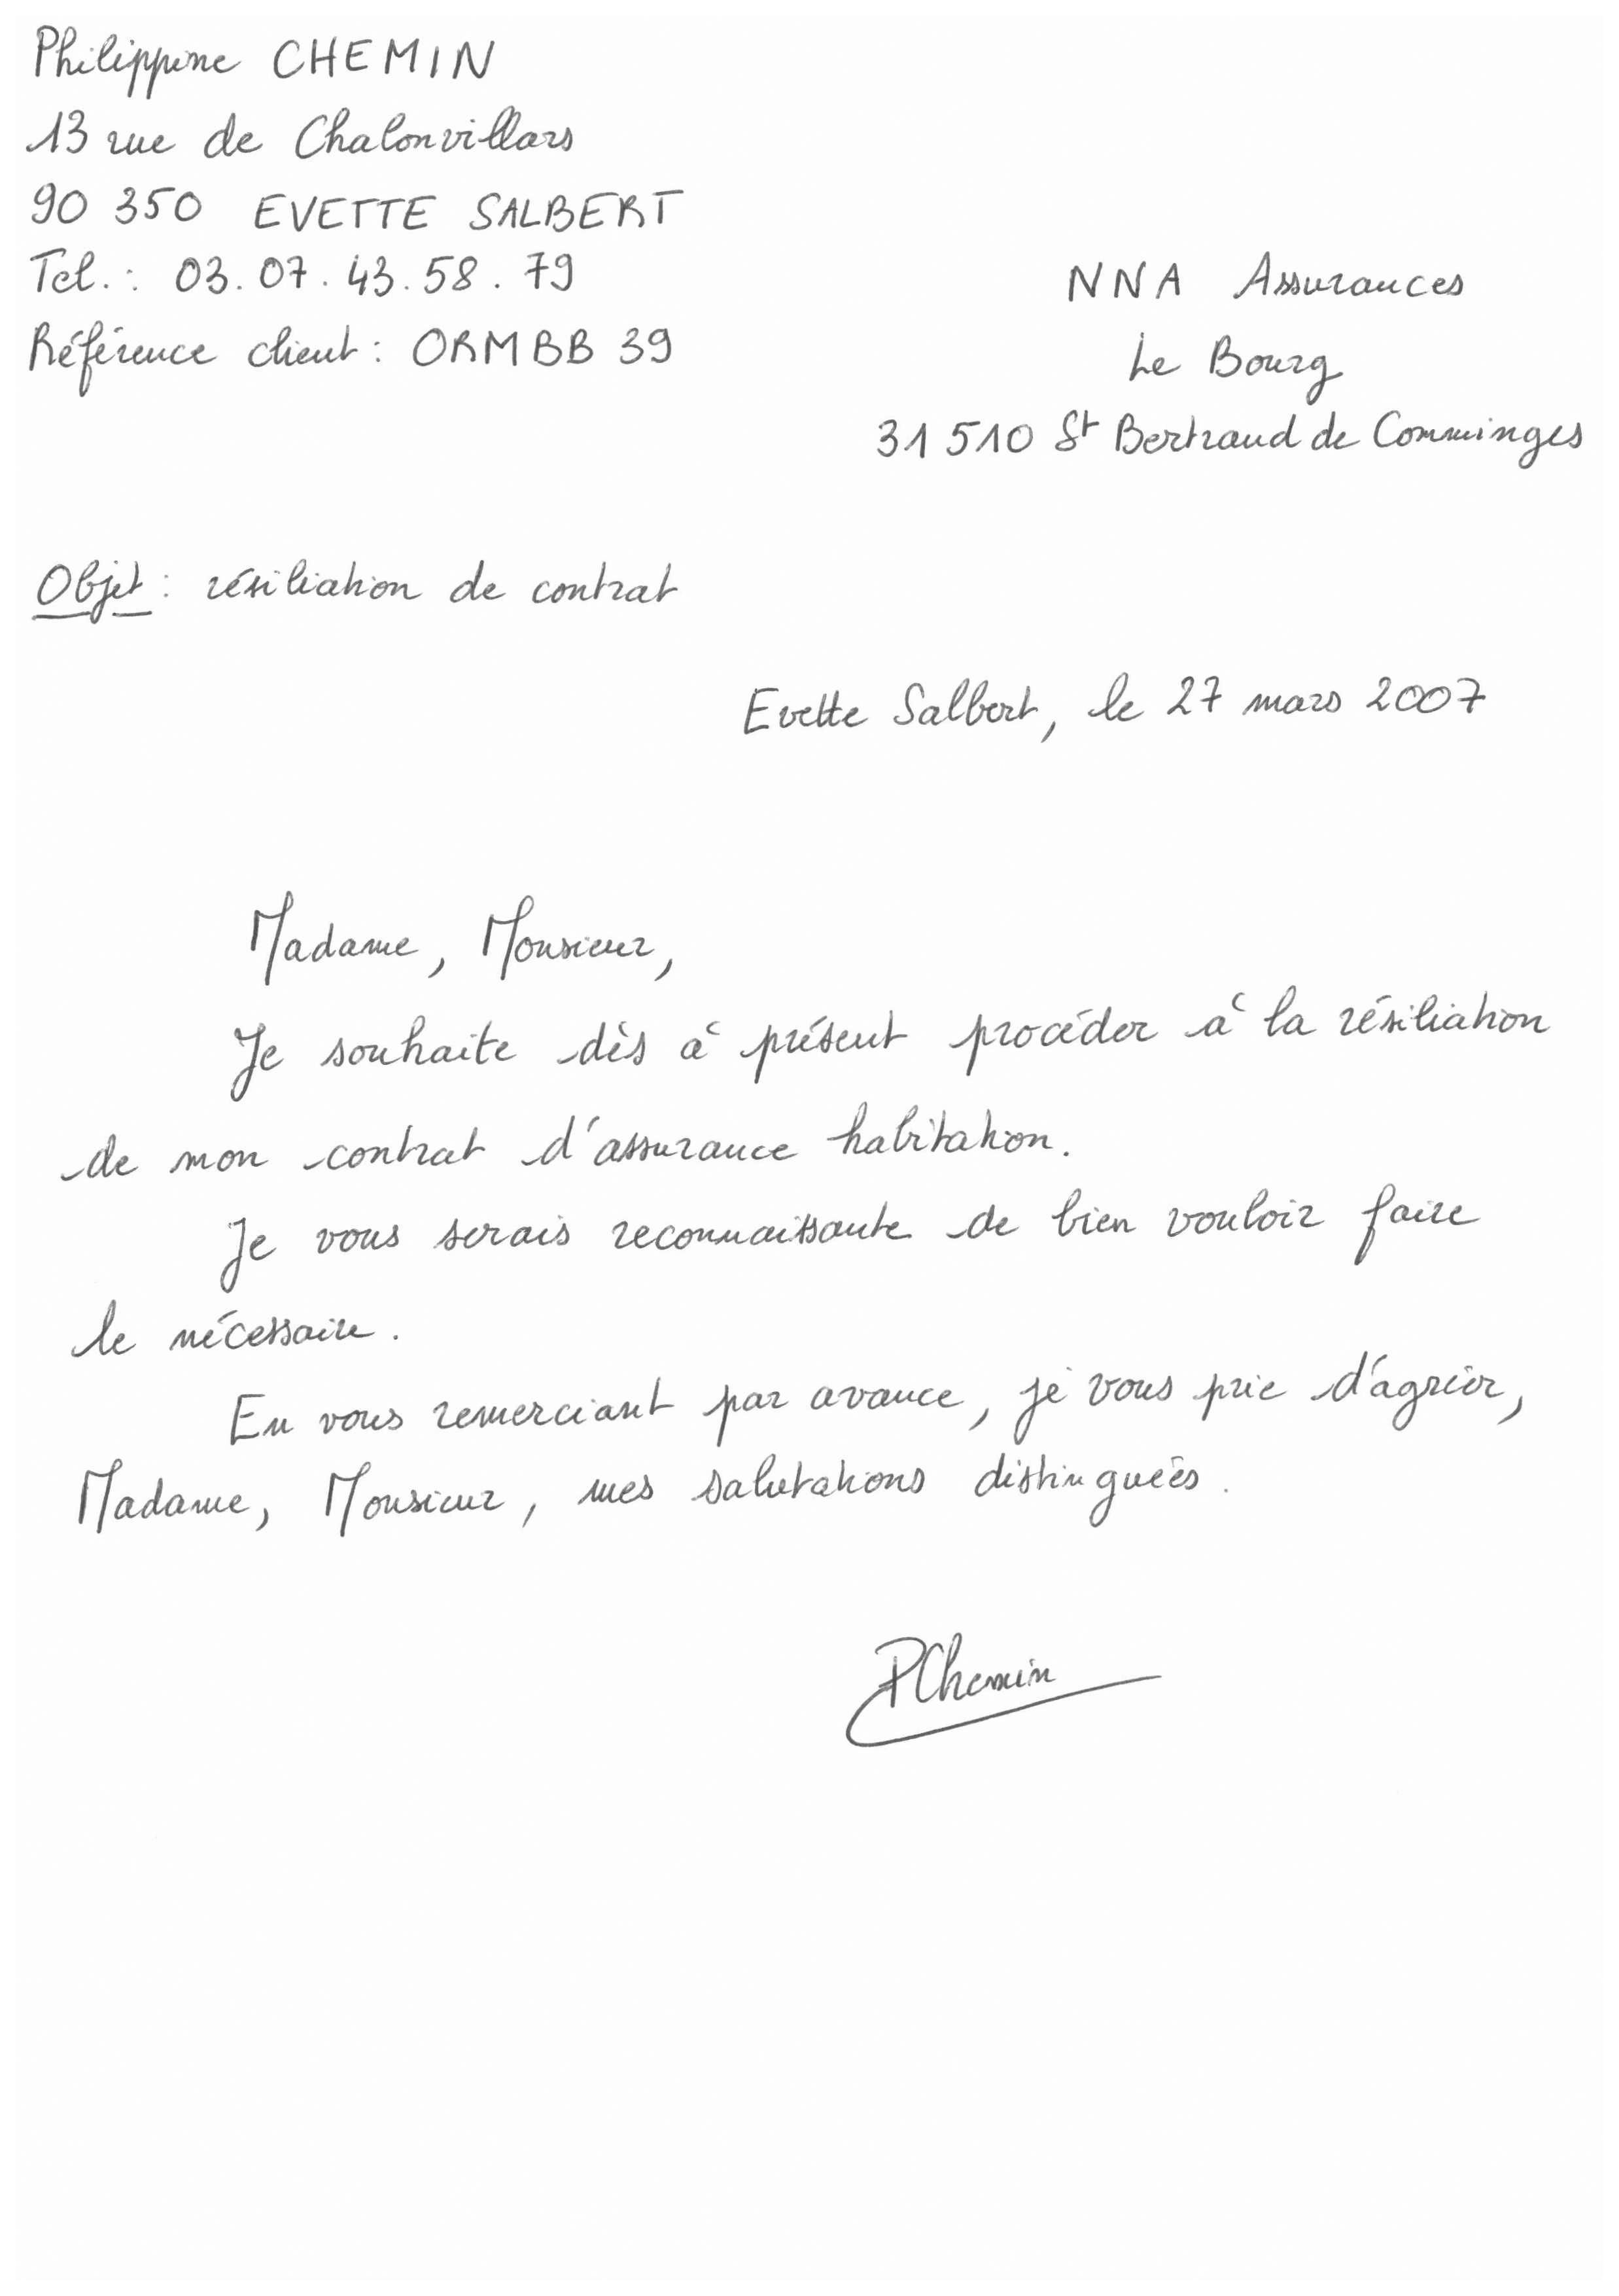 Philippine CHEMIN
13 rue de Chalonvillars
90 350 EVETTE SALBERT
Tel. : 03.07.43.58.79
Référence client : ORMBB 39
NNA Assurances
Le Bourg
31 510 St Bertrand de Comminges
Objet : résiliation de contrat
Evette Salbert, le 27 mars 2007
Madame, Monsieur,
Je souhaite dès à présent procéder à la résiliation
de mon contrat d'assurance habitation.
Je vous serais reconnaissante de bien vouloir faire
le nécessaire.
En vous remerciant par avance, je vous prie d'agréer,
Madame, Monsieur, mes salutations distinguées.
PChemin